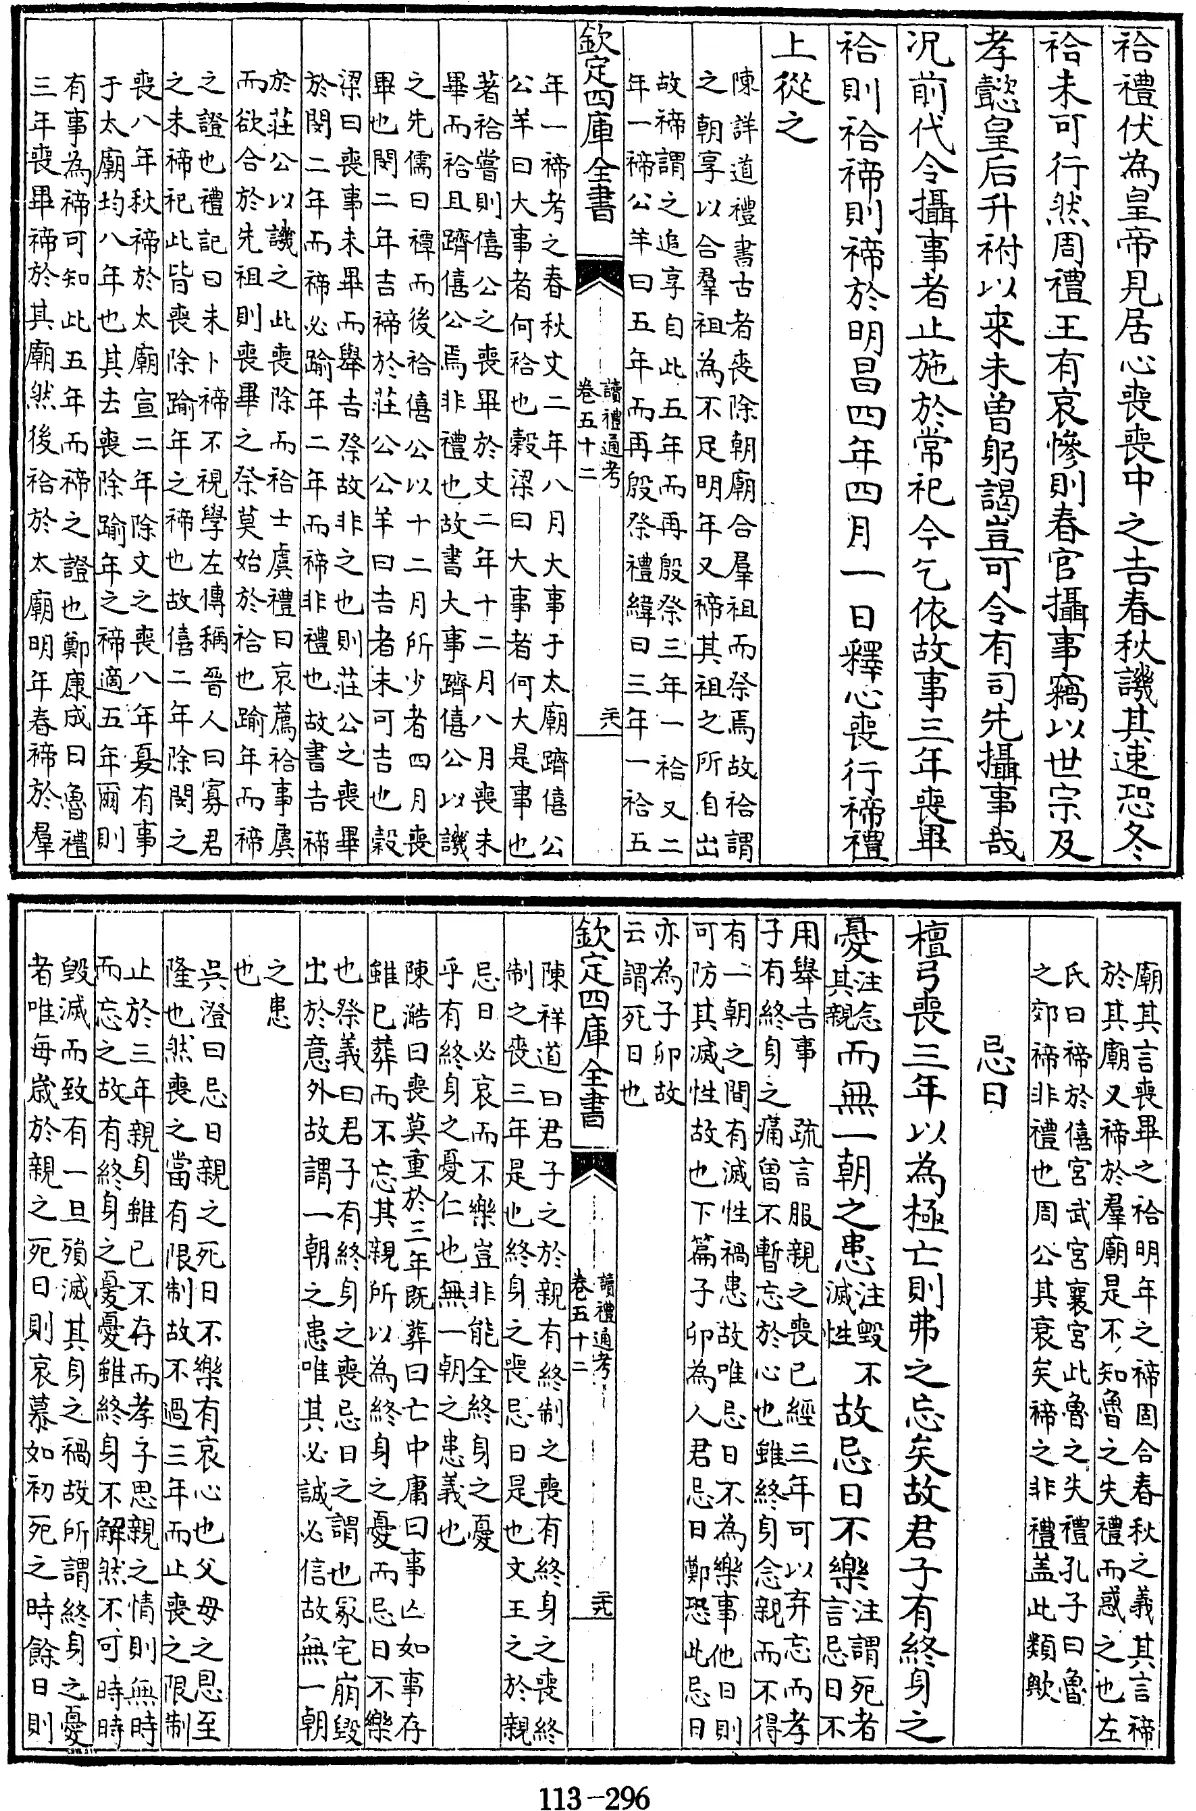 祫禮伏為皇帝見居心喪喪中之吉春秋譏其速恐冬
祫未可行然周禮王有哀慘則春官攝事竊以世宗及
孝懿皇后升祔以來未曾躬謁豈可令有司先攝事哉
况前代令攝事者止施於常祀今乞依故事三年喪畢
祫則祫禘則禘於明昌四年四月一日釋心喪行禘禮
上從之
陳詳道禮書古者喪除朝廟合羣祖而祭焉故祫謂
之朝享以合羣祖為不足明年又禘其祖之所自出
故禘謂之追享自此五年而再殷祭三年一祫又二
年一禘公羊曰五年而再殷祭禮緯曰三年一祫五
欽定四庫全書
讀禮通考
卷五十二
二十八
年一禘考之春秋文二年八月大事于太廟躋僖公
公羊曰大事者何祫也穀梁曰大事者何大是事也
著祫嘗則僖公之喪畢於文二年十二月八月喪未
畢而祫且躋僖公焉非禮也故書大事躋僖公以譏
之先儒曰禫而後祫僖公以十二月所少者四月喪
畢也閔二年吉禘於莊公公羊曰吉者未可吉也穀
梁曰喪事未畢而舉吉祭故非之也則莊公之喪畢
於閔二年而禘必踰年二年而禘非禮也故書吉禘
於莊公以譏之此喪除而祫士虞禮曰哀薦祫事虞
而欲合於先祖則喪畢之祭莫始於祫也踰年而禘
之證也禮記曰未卜禘不視學左傳稱晉人曰寡君
之未禘祀此皆喪除踰年之禘也故僖二年除閔之
喪八年秋禘於太廟宣二年除文之喪八年夏有事
于太廟均八年也其去喪除踰年之禘適五年爾則
有事為禘可知此五年而禘之證也鄭康成曰魯禮
三年喪畢禘於其廟然後祫於太廟明年春禘於羣
廟其言喪畢之祫明年之禘固合春秋之義其言禘
於其廟又禘於羣廟是不知魯之失禮而惑之也左
氏曰禘於僖宮武宮襄宮此魯之失禮孔子曰魯
之郊禘非禮也周公其衰矣禘之非禮蓋此類歟
忌日
檀弓喪三年以為極亡則弗之忘矣故君子有終身之
憂注念其親而無一朝之患注毀不滅性故忌日不樂注謂死者言忌日不
用舉吉事 疏言服親之喪已經三年可以弃忘而孝
子有終身之痛曾不暫忘於心也雖終身念親而不得
有一朝之間有滅性禍患故唯忌日不為樂事他日則
可防其滅性故也下篇子卯為人君忌日鄭恐此忌日
亦為子卯故
云謂死日也
欽定四庫全書
讀禮通考
卷五十二
二十九
陳祥道曰君子之於親有終制之喪有終身之喪終
制之喪三年是也終身之喪忌日是也文王之於親
忌日必哀而不樂豈非能全終身之憂
乎有終身之憂仁也無一朝之患義也
陳澔曰喪莫重於三年既葬曰亡中庸曰事亡如事存
雖已葬而不忘其親所以為終身之憂而忌日不樂
也祭義曰君子有終身之喪忌日之謂也冢宅崩毀
出於意外故謂一朝之患唯其必誠必信故無一朝
之患
也
吳澄曰忌日親之死日不樂有哀心也父母之恩至
隆也然喪之當有限制故不過三年而止喪之限制
止於三年親身雖已不存而孝子思親之情則無時
而忘之故有終身之憂憂雖終身不解然不可時時
毀滅而致有一旦殞滅其身之禍故所謂終身之憂
者唯每歲於親之死日則哀慕如初死之時餘日則
113-296